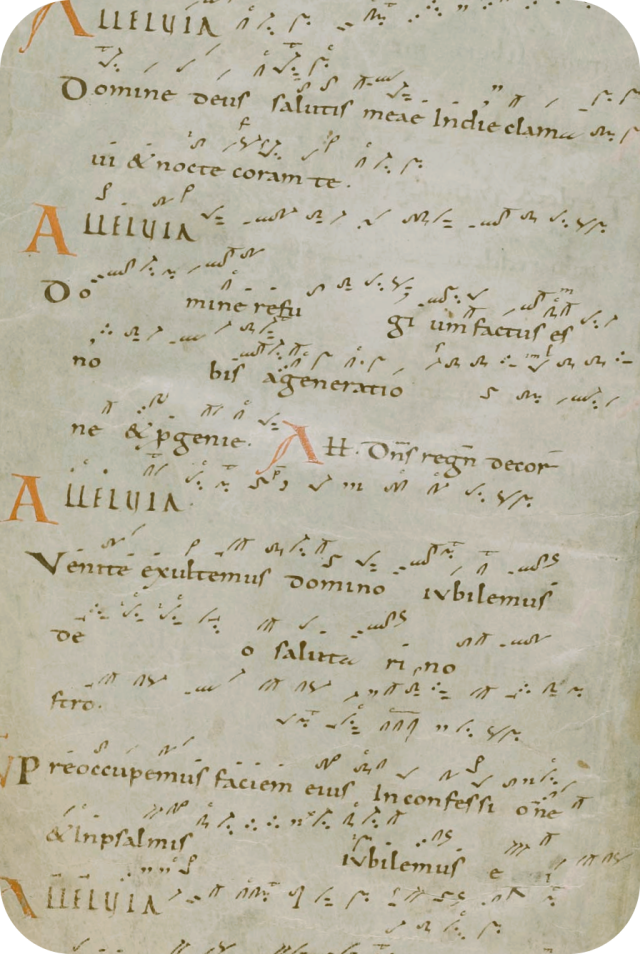 ALLELUIA
Domine deus salutis meae In die clama
ui & nocte coram te.
ALLELUIA
Do mine refu gi um factus es
no bis ageneratio
ne & pgenie. All. Dns regn decor
ALLELUIA.
Venite exultemus domino iubilemus
de o saluta ri no
stro.
Preoccupemus faciem eius In confessi one
& In psalmis iubilemus e i
ALLELUIA